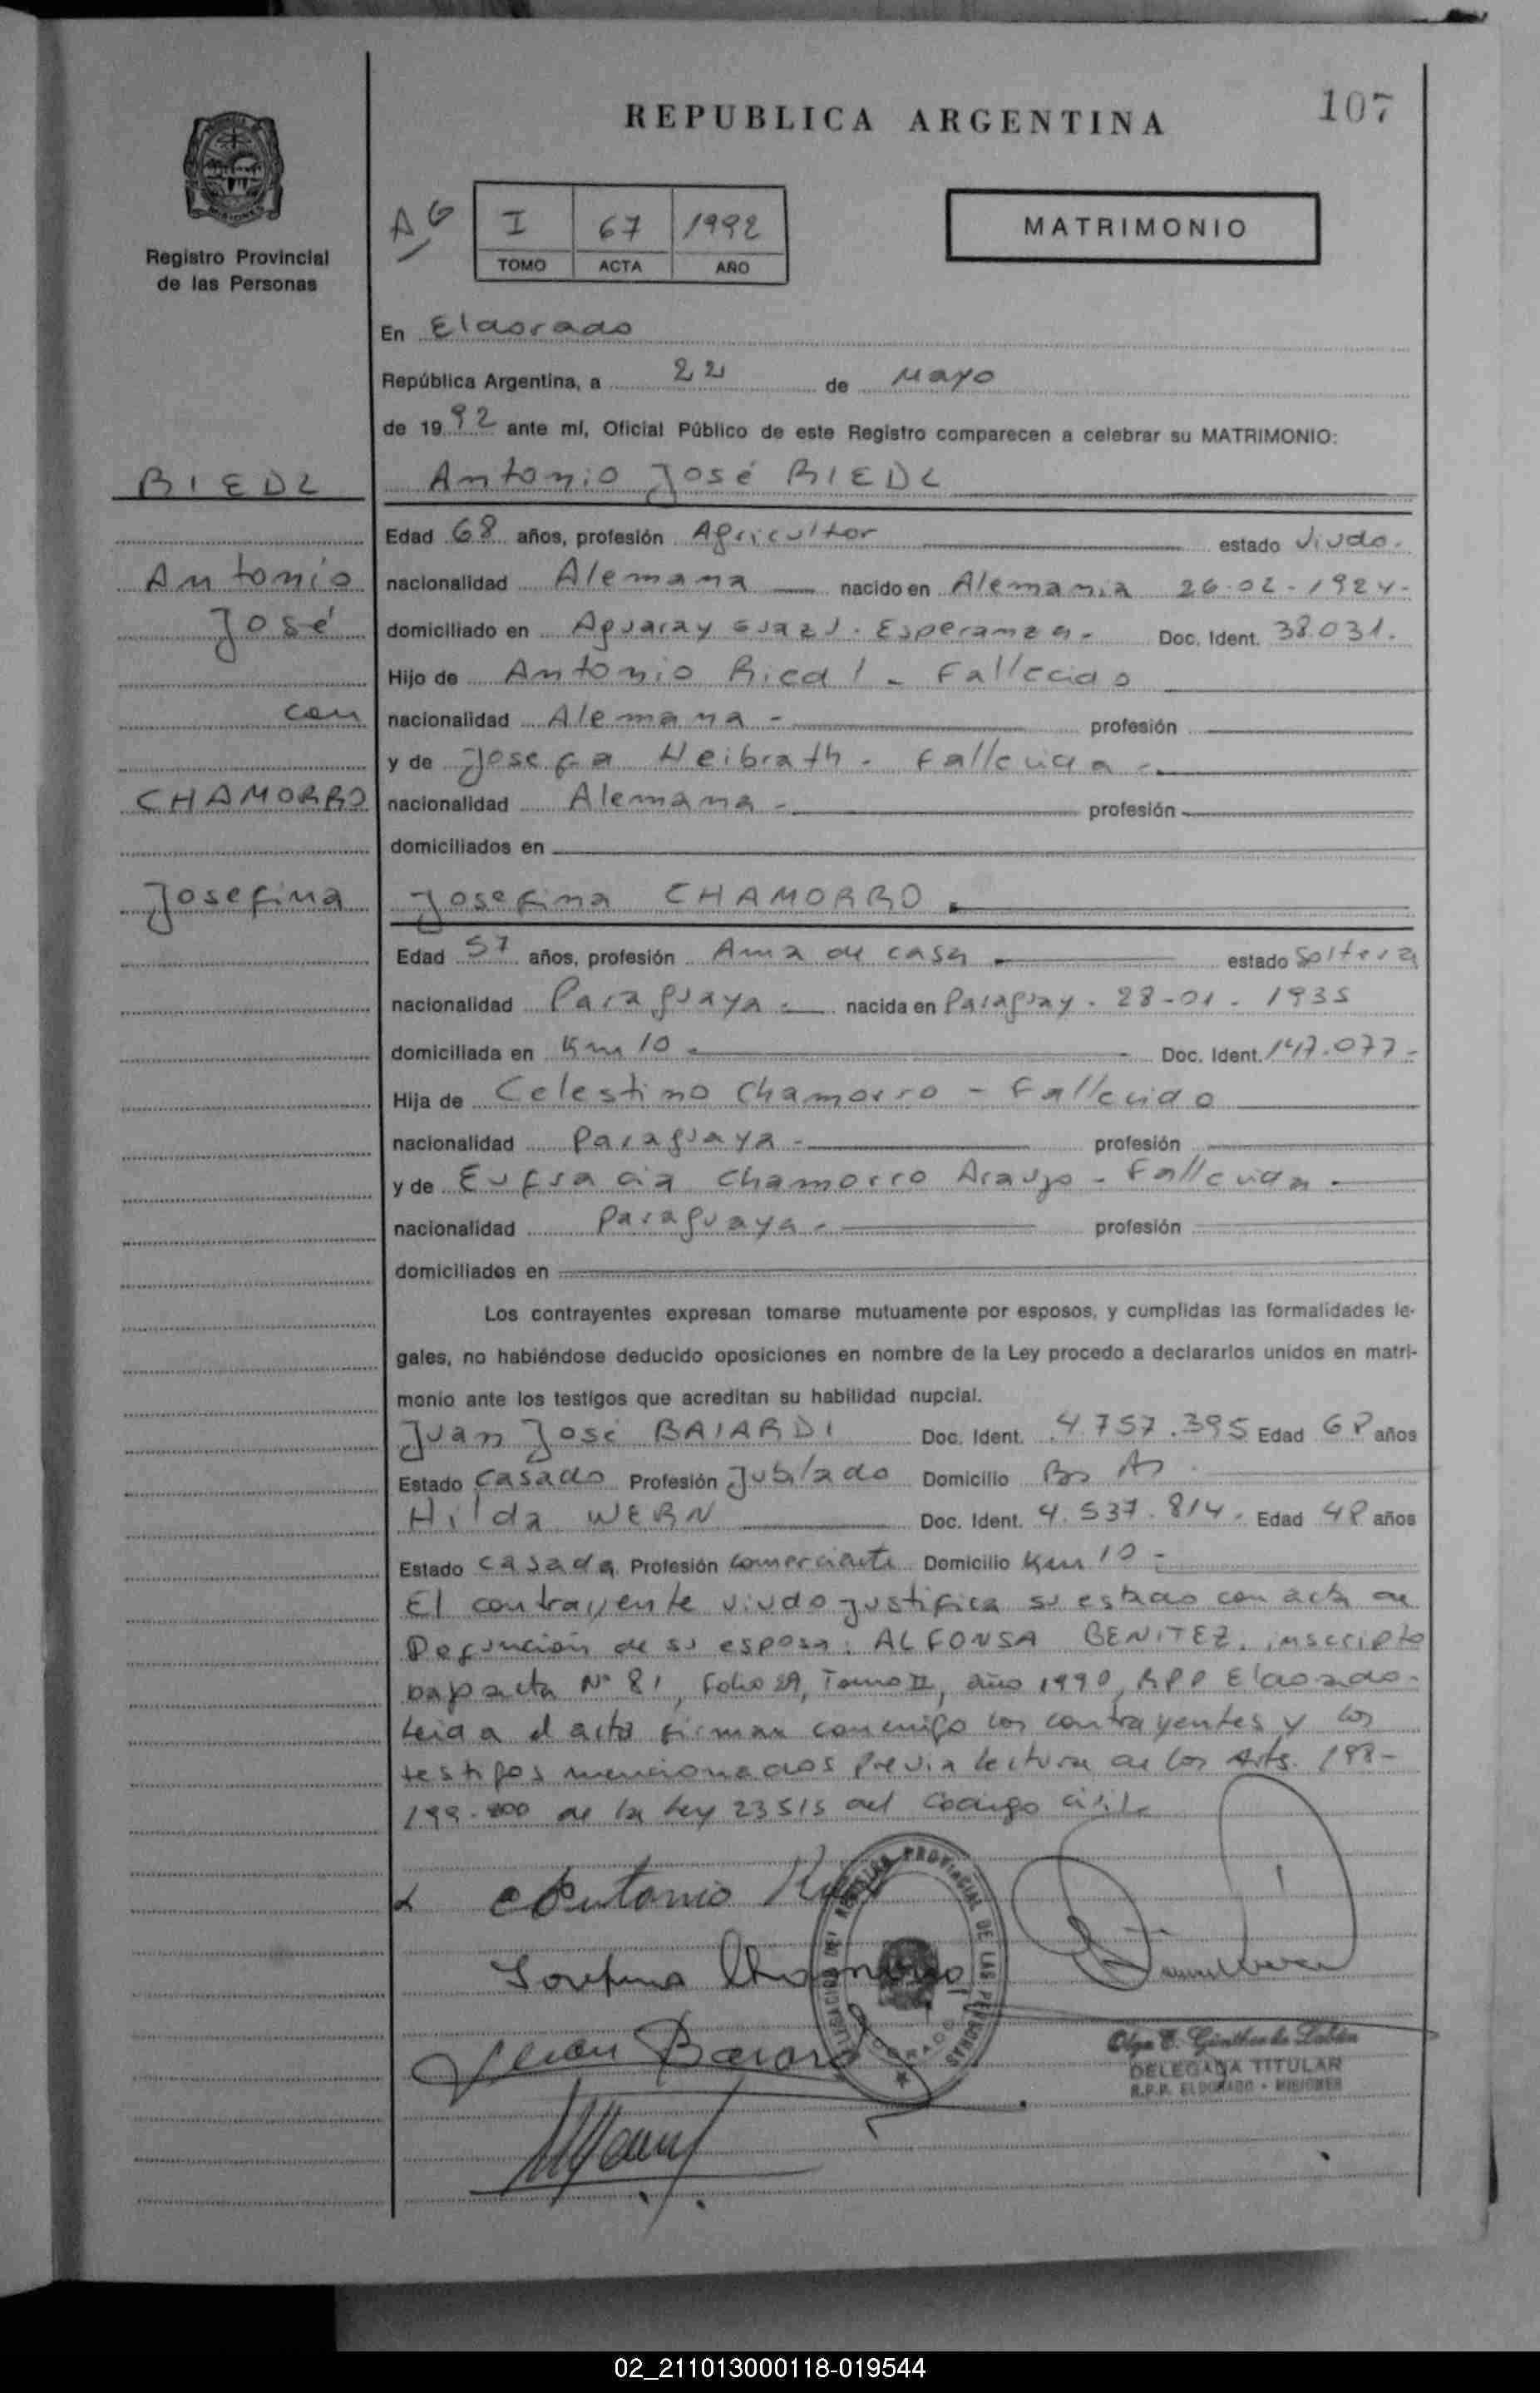 107
REPUBLICA ARGENTINA
Registro Provincial
de las Personas
AG
I 67 1992
TOMO ACTA AÑO
MATRIMONIO
En Eldorado
República Argentina, a 22 de Mayo
de 1992 ante mí, Oficial Público de este Registro comparecen a celebrar su MATRIMONIO:
BIEDL
Antonio
José
con
CHAMORRO
Josefina
Antonio José BIEDL
Edad 68 años, profesión Agricultor estado Viudo.
nacionalidad Alemana nacido en Alemania 26-02-1924-
domiciliado en Aguaray Guazu. Esperanza. Doc. Ident. 38.031.
Hijo de Antonio Riedl - Fallecido
nacionalidad Alemana - profesión
y de Josefa Heibrath - Fallecida -
nacionalidad Alemana - profesión
domiciliados en
Josefina CHAMORRO.
Edad 57 años, profesión Ama de casa estado Soltera
nacionalidad Paraguaya - nacida en Paraguay - 28-01-1935
domiciliada en Km 10 - Doc. Ident. 147.077-
Hija de Celestino Chamorro - Fallecido
nacionalidad Paraguaya - profesión
y de Eufracia Chamorro Araujo - Fallecida -
nacionalidad Paraguaya - profesión
domiciliados en
Los contrayentes expresan tomarse mutuamente por esposos, y cumplidas las formalidades le-
gales, no habiéndose deducido oposiciones en nombre de la Ley procedo a declararlos unidos en matri-
monio ante los testigos que acreditan su habilidad nupcial.
Juan José BAIARDI Doc. Ident. 4.757.395 Edad 68 años
Estado Casado Profesión Jubilado Domicilio Bs As.
Hilda WERN Doc. Ident. 4.537.814. Edad 48 años
Estado casada Profesión comerciante Domicilio Km 10 -
El contrayente viudo justifica su estado con acta de
Defunción de su esposa: ALFONSA BENITEZ, inscripto
bajo acta Nº 81, Folio 29, Tomo II, año 1990, RPP Eldorado.
Leida el acta firman conmigo los contrayentes y los
testigos mencionados previa lectura de los Arts. 198-
199-200 de la Ley 23515 del Codigo Civil
Antonio
Josefina Chamorro
Juan
DELEGACION DEL REGISTRO PROVINCIAL DE LAS PERSONAS
ELDORADO
Olga E. Günther de Labán
DELEGADA TITULAR
R.P.P. ELDORADO - MISIONES
02_211013000118-019544